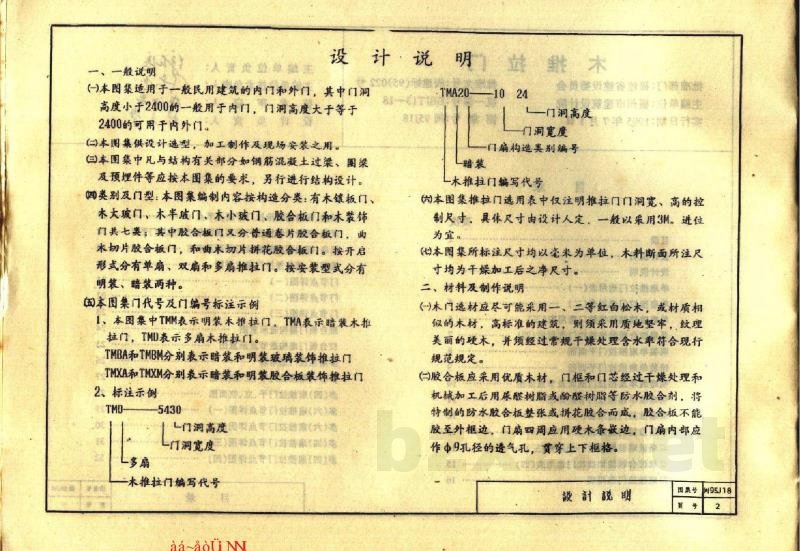 设计说明
一、一般说明
㈠本图集适用于一般民用建筑的内门和外门，其中门洞
高度小于2400的一般用于内门，门洞高度大于等于
2400的可用于内外门。
㈡本图集供设计选型，加工制作及现场安装之用。
㈢本图集中凡与结构有关部分如钢筋混凝土过梁、圈梁
及预埋件等应按本图集的要求，另行进行结构设计。
㈣类别及门型：本图集编制内容按构造分类：有木镶板门、
木大玻门、木半玻门、木小玻门、胶合板门和木装饰
门共七类；其中胶合板门又分普通卷片胶合板门，曲
木切片胶合板门，和曲木切片拼花胶合板门。按开启
形式分有单扇、双扇和多扇推拉门。按安装型式分有
明装、暗装两种。
㈤本图集门代号及门编号标注示例
1、本图集中TMM表示明装木推拉门，TMA表示暗装木推
拉门，TMD表示多扇木推拉门。
TMBA和TMBM分别表示暗装和明装玻璃装饰推拉门
TMXA和TMXM分别表示暗装和明装胶合板装饰推拉门
2、标注示例
TMD——5430
门洞高度
门洞宽度
多扇
木推拉门编写代号
TMA20——10 24
门洞高度
门洞宽度
门扇构造类别编号
暗装
木推拉门编写代号
㈥本图集推拉门选用表中仅注明推拉门门洞宽、高的控
制尺寸，具体尺寸由设计人定，一般以采用3M。进位
为宜。
㈦本图集所标注尺寸均以毫米为单位，木料断面所注尺
寸均为干燥加工后之净尺寸。
二、材料及制作说明
㈠木门选材应尽可能采用一、二等红白松木，或材质相
似的木材，高标准的建筑，则须采用质地坚牢，纹理
美丽的硬木，并须经过常规干燥处理含水率符合现行
规范规定。
㈡胶合板应采用优质木材，门框和门芯经过干燥处理和
机械加工后用尿醛树脂或酚醛树脂等防水胶合剂，将
特制的防水胶合板整张或拼花胶合而成，胶合板不能
胶至外框边，门扇四周应用硬木条嵌边，门扇内部应
作φ9孔径的透气孔，贯穿上下框格。
设计说明
图集号 闽95J18
页号 2